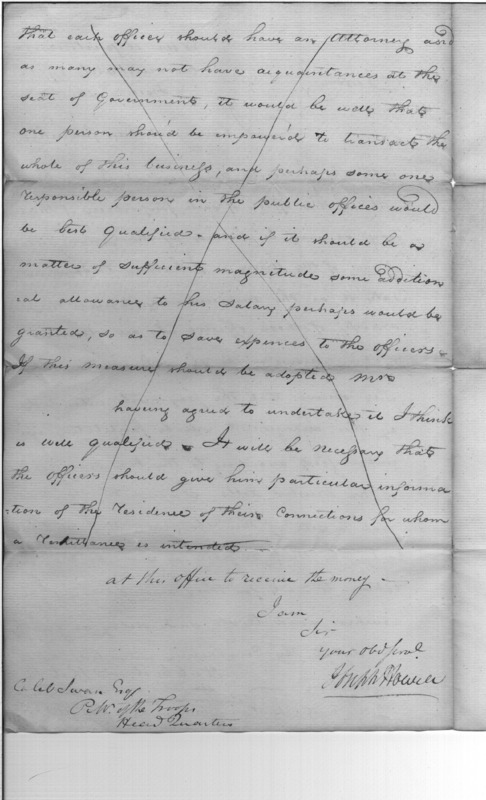 that each officer should have an Attorney and
as many may not have acquaintances at the
seat of Government, it would be well that
one person should be empower'd to transact the
whole of this business, and perhaps some one
responsible person in the public offices would
be best qualified - and if it should be a
matter of sufficient magnitude some addition
al allowance to his salary perhaps would be
granted, so as to save expences to the officers -
If this measure should be adopted Mr
having agreed to undertake it I think
is well qualified - It will be necessary that
the officers should give him particular informa
-tion of the residence of their connections for whom
a remittance is intended -
at this office to receive the money -
I am
Sir
your obd. servt.
Joseph Howell
Caleb Swan Esq
P. Mr. of the Troops
Head Quarters